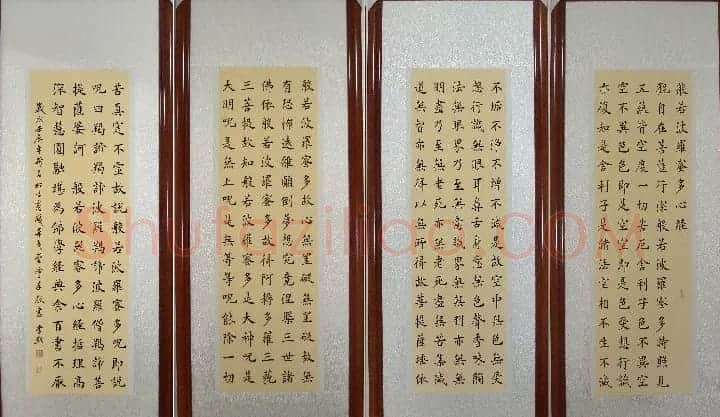 般若波羅蜜多心經
觀自在菩薩行深般若波羅蜜多時照見
五蘊皆空度一切苦厄舍利子色不異空
空不異色色即是空空即是色受想行識
亦復如是舍利子是諸法空相不生不滅
不垢不淨不增不減是故空中無色無受
想行識無眼耳鼻舌身意無色聲香味觸
法無眼界乃至無意識界無無明亦無無
明盡乃至無老死亦無老死盡無苦集滅
道無智亦無得以無所得故菩提薩埵依
般若波羅蜜多故心無罣礙無罣礙故無
有恐怖遠離顛倒夢想究竟涅槃三世諸
佛依般若波羅蜜多故得阿耨多羅三藐
三菩提故知般若波羅蜜多是大神呪是
大明呪是無上呪是無等等呪能除一切
苦真實不虛故說般若波羅蜜多呪即說
呪曰揭諦揭諦波羅揭諦波羅僧揭諦菩
提薩婆訶 般若波羅蜜多心經哲理高
深智慧圓融堪為佛學經典舍百書不厭
歲次壬辰年
Shufaziliao.COM